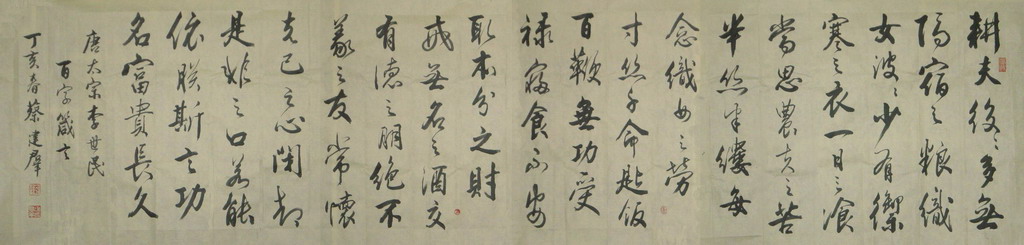 耕夫役〻多無
隔宿之粮織
女波〻少有禦
寒之衣一日三飡
當思農夫之苦
半絲半縷每
念織女之勞
寸絲千命匙飯
百鞭無功受
禄寢食不安
取本分之財
戒無名之酒交
有德之朋絕不
義之友常懷
克己之心閉却
是非之口若能
依朕斯言功
名富貴長久
唐太宗李世民
百字箴言
丁亥春蔡建羣